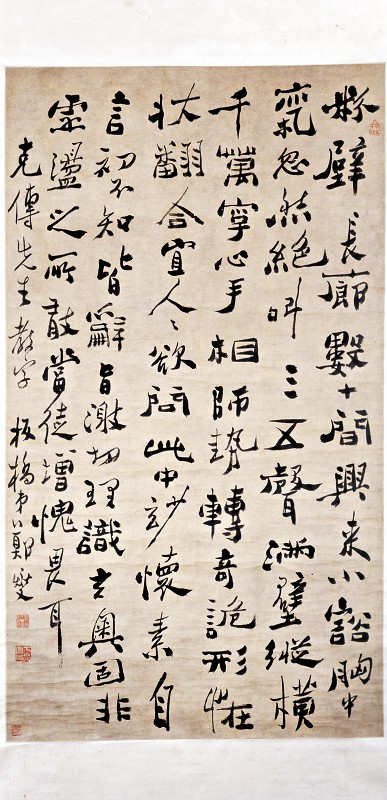 粉壁長廊數十間興來小豁胸中
氣忽然絕叫三五聲滿壁縱橫
千萬字心手相師勢轉奇詭形怪
狀翻合宜人〻欲問此中妙懷素自
言初不知皆辭旨激切理識玄奧固非
虛濫之所敢當徒增愧畏耳
克傳先生教字 板橋弟鄭燮